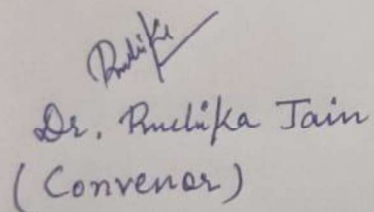 Ruchika
Dr. Ruchika Jain
(Convenor)